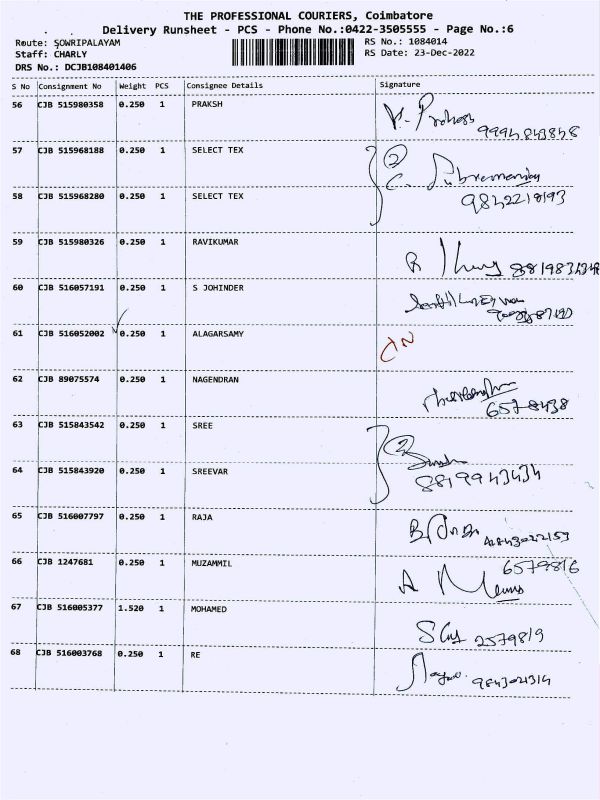 THE PROFESSIONAL COURIERS, Coimbatore
Delivery Runsheet - PCS - Phone No.:0422-3505555 - Page No.:6
Route: SOWRIPALAYAM RS No.: 1084014
Staff: CHARLY RS Date: 23-Dec-2022
DRS No.: DCJB108401406
S No Consignment No Weight PCS Consignee Details Signature
56 CJB 515980358 0.250 1 PRAKSH
57 CJB 515968188 0.250 1 SELECT TEX 2
58 CJB 515968280 0.250 1 SELECT TEX 9842218193
59 CJB 515980326 0.250 1 RAVIKUMAR
60 CJB 516057191 0.250 1 S JOHINDER
61 CJB 516052002 0.250 1 ALAGARSAMY
62 CJB 89075574 0.250 1 NAGENDRAN 6578438
63 CJB 515843542 0.250 1 SREE 2
64 CJB 515843920 0.250 1 SREEVAR 8819943434
65 CJB 516007797 0.250 1 RAJA
66 CJB 1247681 0.250 1 MUZAMMIL 6579816
67 CJB 516005377 1.520 1 MOHAMED 2579819
68 CJB 516003768 0.250 1 RE